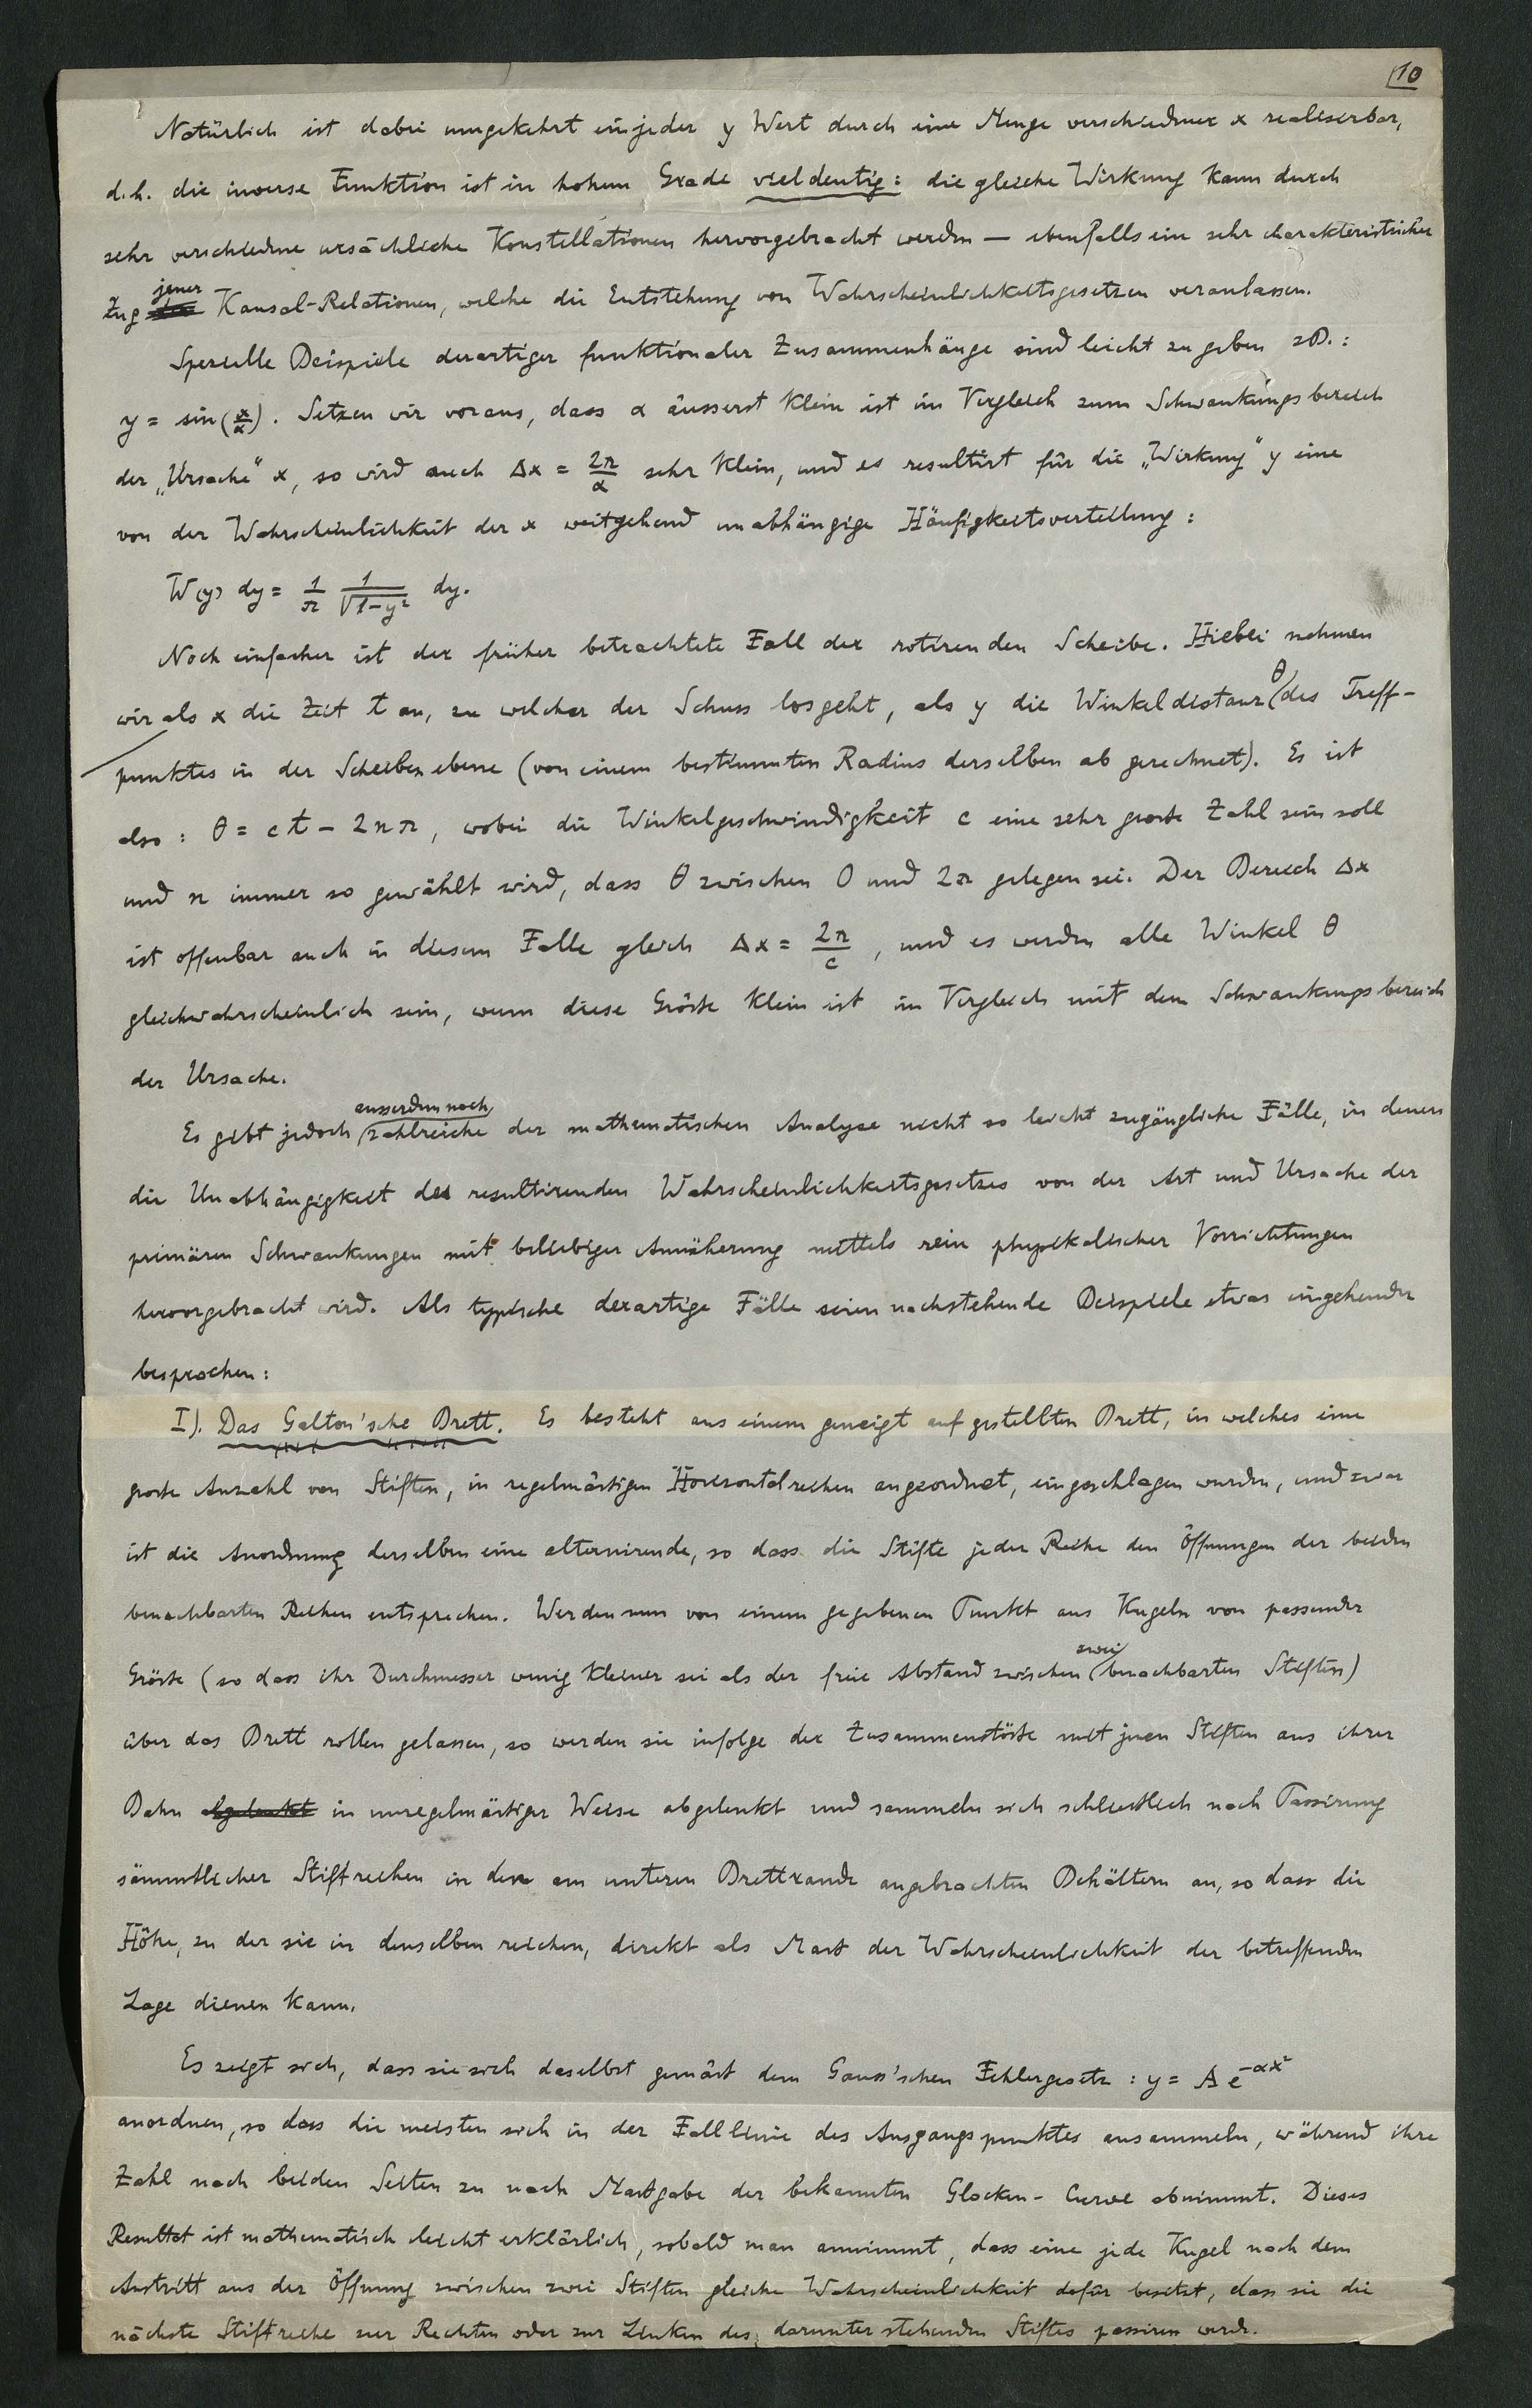 10
Natürlich ist dabei umgekehrt ein jeder y Wert durch eine Menge verschiedner x realisierbar,
d.h. die inverse Funktion ist in hohem Grade vieldeutig: die gleiche Wirkung kann durch
sehr verschiedne ursächliche Konstellationen hervorgebracht werden — ebenfalls ein sehr charakteristischer
Zug jener Kausal-Relationen, welche die Entstehung von Wahrscheinlichkeitsgesetzen veranlassen.
Spezielle Beispiele derartiger funktionaler Zusammenhänge sind leicht zu geben zB.:
y = sin(x/α). Setzen wir voraus, dass α äusserst klein ist im Vergleich zum Schwankungsbereich
der „Ursache" x, so wird auch Δx = 2π/α sehr klein, und es resultirt für die „Wirkung" y eine
von der Wahrscheinlichkeit der x weitgehend unabhängige Häufigkeitsverteilung:
W(y) dy = 1/π 1/√1-y² dy.
Noch einfacher ist der früher betrachtete Fall der rotirenden Scheibe. Hiebei nehmen
wir als x die Zeit t an, zu welcher der Schuss losgeht, als y die Winkeldistanz θ des Treff-
punktes in der Scheibenebene (von einem bestimmten Radius derselben ab gerechnet). Es ist
also: θ = ct - 2nπ, wobei die Winkelgeschwindigkeit c eine sehr große Zahl sein soll
und n immer so gewählt wird, dass θ zwischen 0 und 2π gelegen sei. Der Bereich Δx
ist offenbar auch in diesem Falle gleich Δx = 2π/c, und es werden alle Winkel θ
gleichwahrscheinlich sein, wenn diese Größe klein ist im Vergleich mit dem Schwankungsbereich
der Ursache.
Es gibt jedoch ausserdem noch zahlreiche der mathematischen Analyse nicht so leicht zugängliche Fälle, in denen
die Unabhängigkeit des resultirenden Wahrscheinlichkeitsgesetzes von der Art und Ursache der
primären Schwankungen mit beliebiger Annäherung mittels rein physikalischer Vorrichtungen
hervorgebracht wird. Als typische derartige Fälle seien nachstehende Beispiele etwas eingehender
besprochen:
I). Das Galton'sche Brett. Es besteht aus einem geneigt aufgestellten Brett, in welches eine
große Anzahl von Stiften, in regelmäßigen Horizontalreihen angeordnet, eingeschlagen wurden, und zwar
ist die Anordnung derselben eine alternirende, so dass die Stifte jeder Reihe den Öffnungen der beiden
benachbarten Reihen entsprechen. Werden nun von einem gegebenen Punkt aus Kugeln von passender
Größe (so dass ihr Durchmesser wenig kleiner sei als der freie Abstand zwischen zwei benachbarten Stiften)
über das Brett rollen gelassen, so werden sie infolge der Zusammenstöße mit jenen Stiften aus ihrer
Bahn abgelenkt in unregelmäßiger Weise abgelenkt und sammeln sich schließlich nach Passirung
sämmtlicher Stiftreihen in den am unteren Brettrande angebrachten Behältern an, so dass die
Höhe, zu der sie in denselben reichen, direkt als Maß der Wahrscheinlichkeit der betreffenden
Lage dienen kann.
Es zeigt sich, dass sie sich daselbst gemäß dem Gauss'schen Fehlergesetz: y = A e^-αx²
anordnen, so dass die meisten sich in der Falllinie des Ausgangspunktes ansammeln, während ihre
Zahl nach beiden Seiten zu nach Maßgabe der bekannten Glocken-Curve abnimmt. Dieses
Resultat ist mathematisch leicht erklärlich, sobald man annimmt, dass eine jede Kugel nach dem
Austritt aus der Öffnung zwischen zwei Stiften gleiche Wahrscheinlichkeit dafür besitzt, dass sie die
nächste Stiftreihe zur Rechten oder zur Linken des darunter stehenden Stiftes passiren werde.